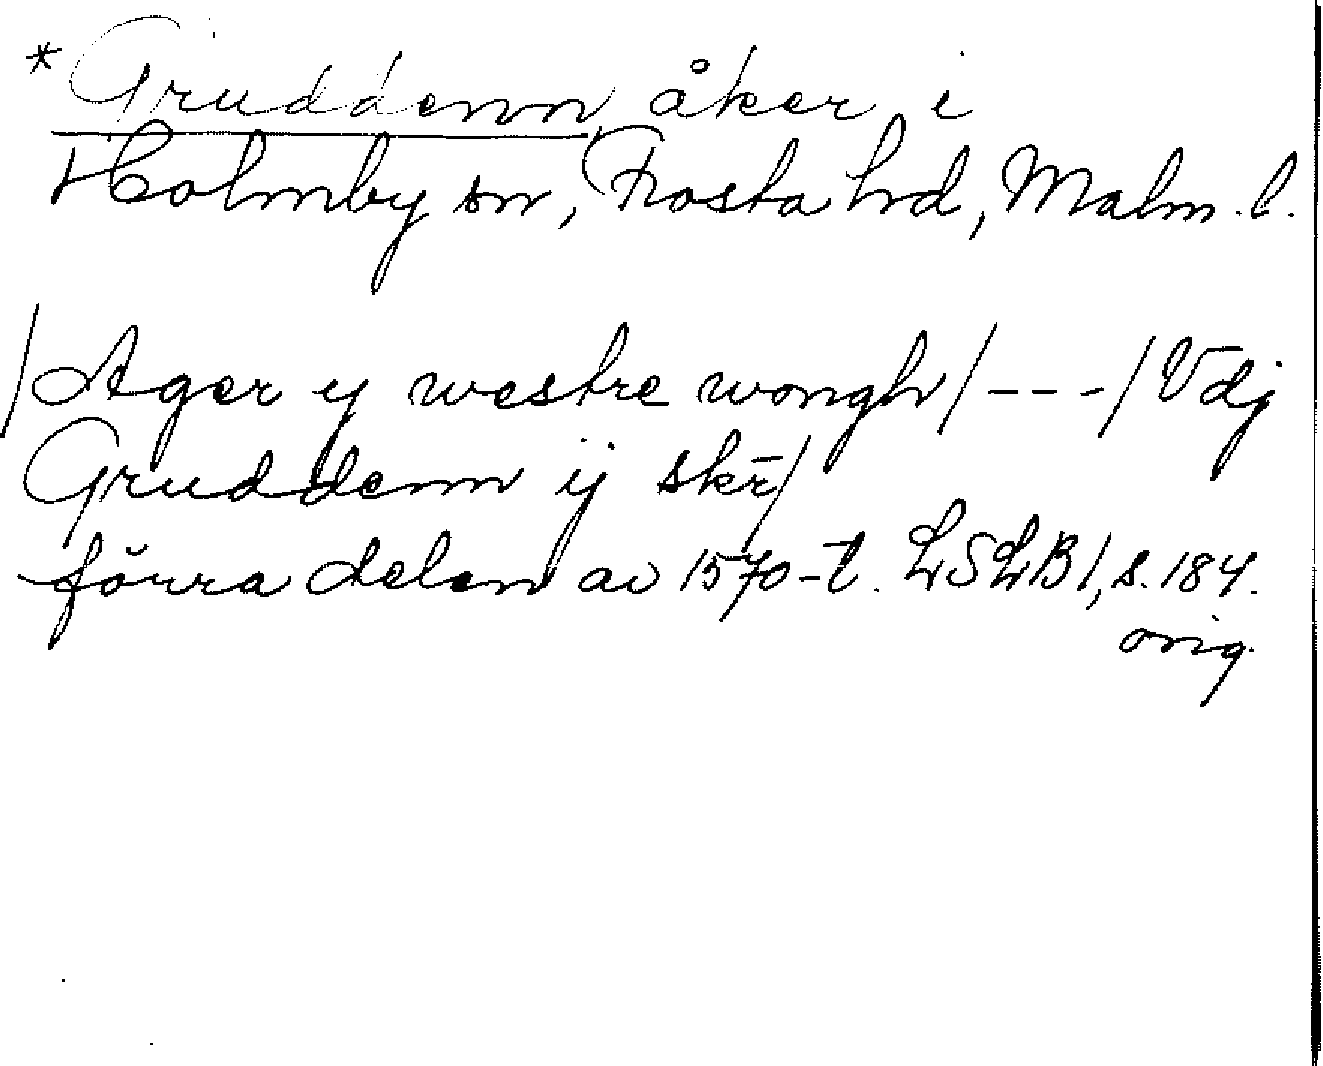 *Gruddenn, åker i
Holmby sn, Frosta hrd, Malm. l.
/Ager y westre wongh/---/Vdj
Gruddenn ij skr̄/
förra delen av 1570-t. LSLB 1, s. 184.
orig.